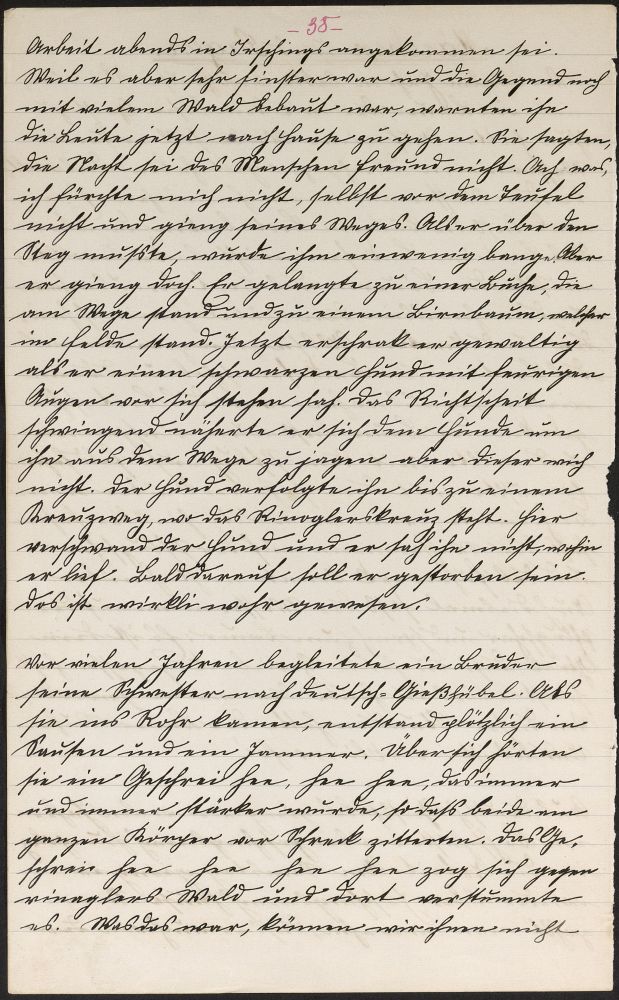 - 35 -
Arbeit abends in Irschings angekommen sei.
Weil es aber sehr finster war und die Gegend noch
mit vielem Wald bebaut war, warnten ihn
die Leute jetzt nach Hause zu gehen. Sie sagten,
die Nacht sei des Menschen Freund nicht. Ach was,
ich fürchte mich nicht, selbst vor dem Teufel
nicht und gieng seines Weges. Als er über den
Steg musste, wurde ihm ein wenig bange. Aber
er gieng doch. Er gelangte zu einer Buche, die
am Wege stand und zu einem Birnbaum, welcher
im Felde stand. Jetzt erschrak er gewaltig
als er einen schwarzen Hund mit feurigen
Augen vor sich stehen sah. Das Richtscheit
schwingend näherte er sich dem Hunde um
ihn aus dem Wege zu jagen aber dieser wich
nicht. Der Hund verfolgte ihn bis zu einem
Kreuzweg, wo das Rinoglerskreuz steht. Hier
verschwand der Hund und er sah ihn nicht, wohin
er lief. Bald darauf soll er gestorben sein.
Dos ist wirkli wohr gewesen.
Vor vielen Jahren begleitete ein Bruder
seine Schwester nach Deutsch-Gießhübel. Als
sie ins Rohr kamen, entstand plötzlich ein
Sausen und ein Jammer. Über sich hörten
sie ein Geschrei hee, hee hee, das immer
und immer stärker wurde, so dass beide am
ganzen Körper vor Schreck zitterten. Das Ge-
schrei hee hee hee hee zog sich gegen
rinaglers Wald und dort verstummte
es. Was das war, können wir ihnen nicht